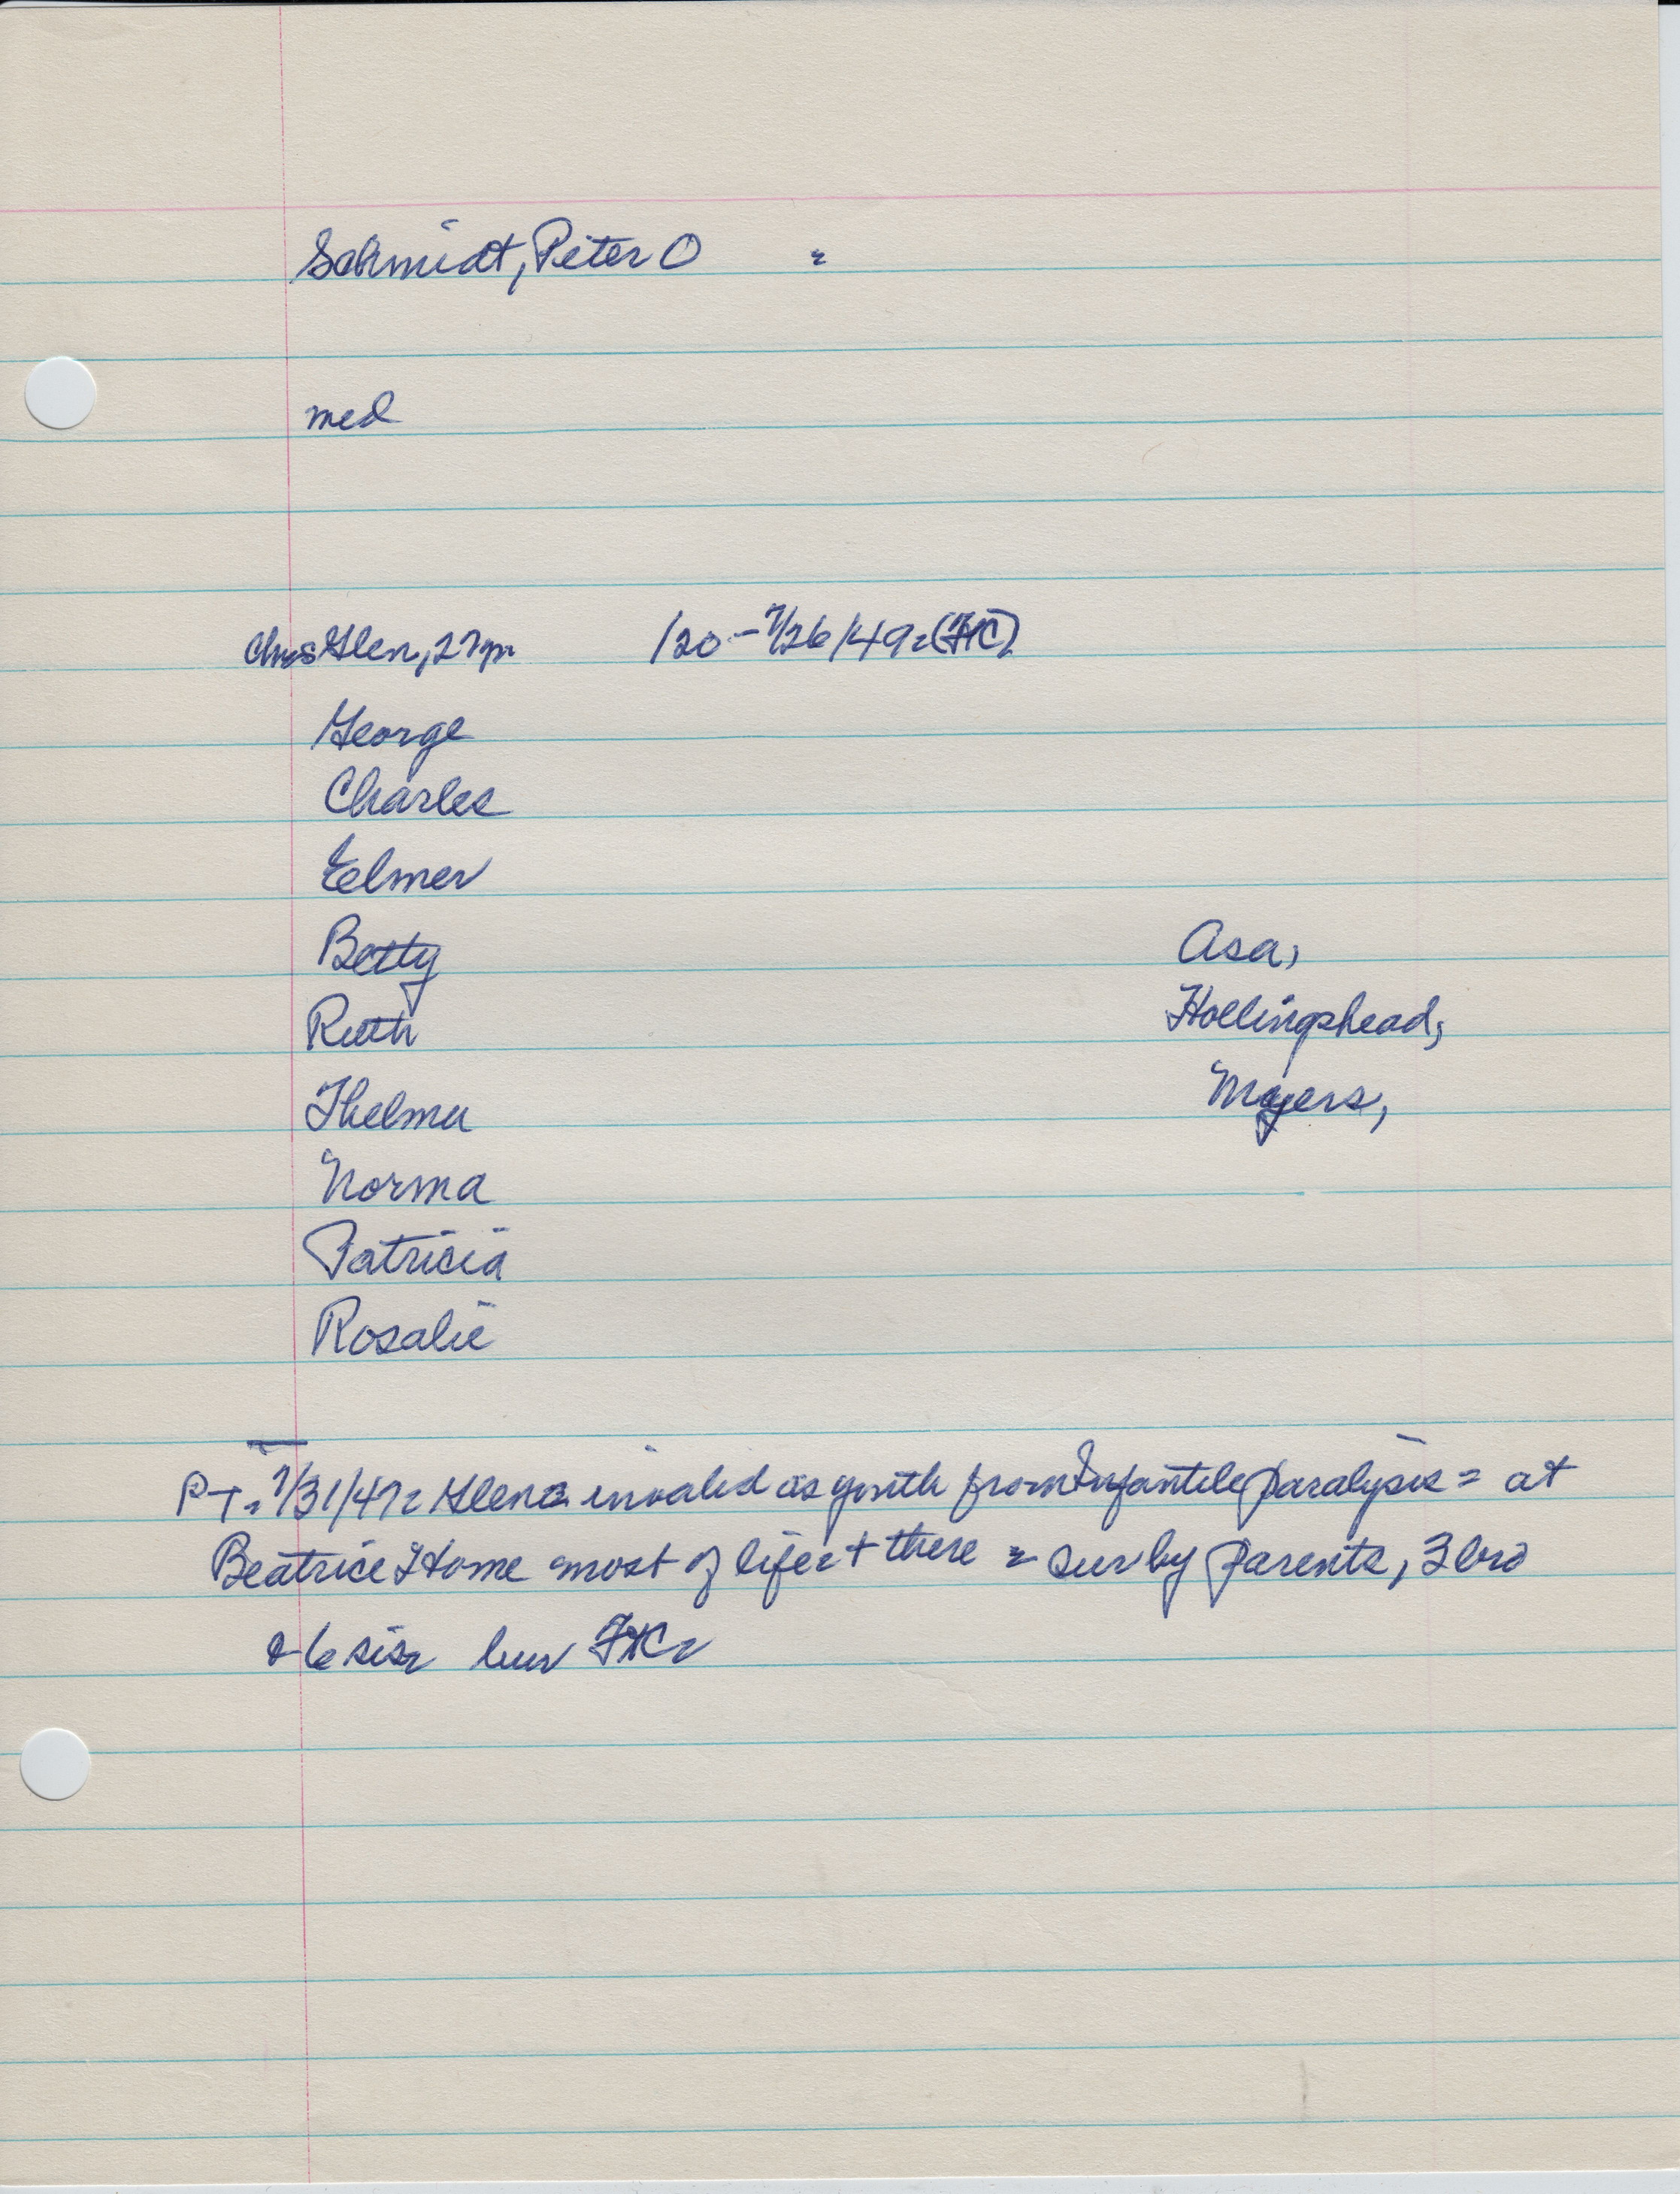 Schmidt, Peter O =
med
Chus Glen, 27 yr /20 - 7/26/49 = (FHC)
George
Charles
Eelmer
Betty Asa,
Ruth Hollingshead,
Thelma Myers,
Norma
Patricia
Rosalie
PT = 7/31/49 = Glen = invalid as youth from Infantile paralysis = at
Beatrice Home most of life = + there = sur by parents, 3 bro
+ 6 sis = bur FHC =